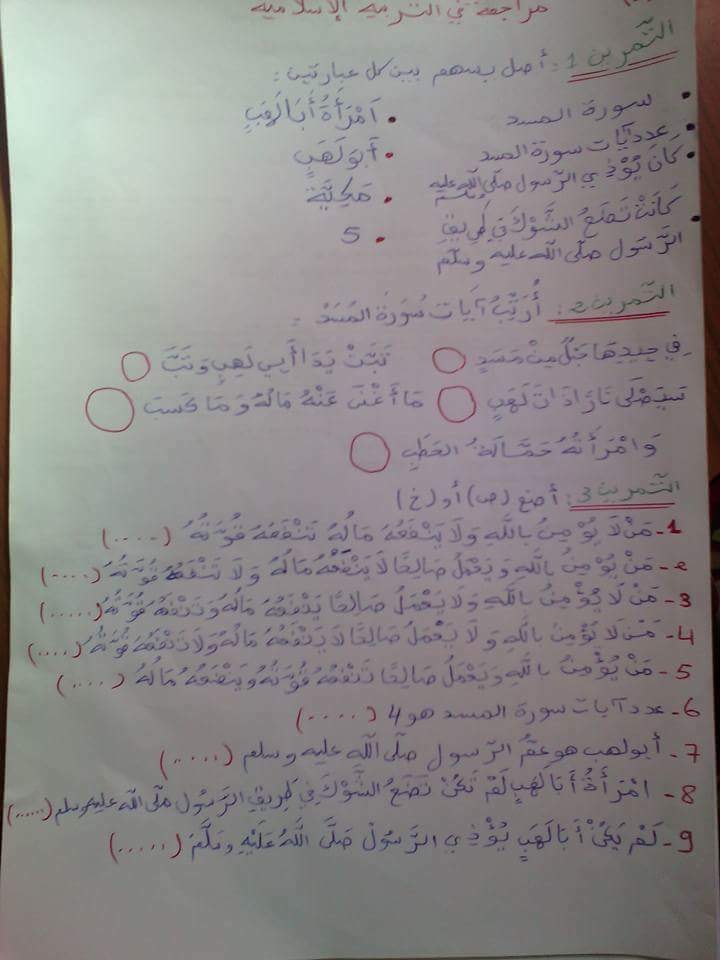 مراجعة في التربية الإسلامية
التّمرين 1: أصل بسهم بين كل عبارتين:
• سورة المسد • اَمْرَأَةُ أَبَا لَهَبٍ
• عدد آيات سورة المسد • أَبَو لَهَبٍ
• كَانَ يُؤْذِي الرّسول صلّى اللّه عليه وسلم • مَكِيَّة
• كَانَتْ تَضَعُ الشَّوْكَ فِي طَرِيقِ • 5
الرّسول صلّى اللّه عليه وسلّم
التّمرين 2: أُرَتِّبُ آيَات سُورَة المَسَدْ:
فِي جِيدِهَا حَبْلٌ مِنْ مَسَدٍ تَبَّتْ يَدَا أَبِي لَهَبٍ وَتَبَّ
سَيَصْلَى نَارًا ذَاتَ لَهَبٍ مَا أَغْنَى عَنْهُ مَالُهُ وَمَا كَسَبَ
وَامْرَأَتُهُ حَمَّالَةُ الحَطَبِ
التّمرين 3: أضع (ص) أو (خ)
1- مَنْ لَا يُؤْمِنُ بِاللَّهِ وَلَا يَنْفَعُهُ مَالُهُ تَنْفَعُهُ قُوَّتُهُ (....)
2- مَنْ يُؤْمِنُ بِاللَّهِ وَيَعْمَلُ صَالِحًا لَا يَنْفَعُهُ مَالُهُ وَلَا تَنْفَعُهُ قُوَّتُهُ (....)
3- مَنْ لَا يُؤْمِنُ بِاللَّهِ وَلَا يَعْمَلُ صَالِحًا يَنْفَعُهُ مَالُهُ وَتَنْفَعُهُ قُوَّتُهُ (.....)
4- مَنْ لَا يُؤْمِنُ بِاللَّهِ وَلَا يَعْمَلُ صَالِحًا لَا يَنْفَعُهُ مَالُهُ وَلَا تَنْفَعُهُ قُوَّتُهُ (....)
5- مَنْ يُؤْمِنُ بِاللَّهِ وَيَعْمَلُ صَالِحًا تَنْفَعُهُ قُوَّتُهُ وَيَنْفَعُهُ مَالُهُ (....)
6- عدد آيات سورة المسد هو 4 (.....)
7- أبو لهب هو عَمُّ الرّسول صلّى اللّه عليه وسلم (.....)
8- اِمْرَأَةُ أَبَا لَهَبٍ لَمْ تَكُنْ تَضَعُ الشَّوْكَ فِي طَرِيقِ الرَّسُول صلّى اللّه عليه وسلم (.....)
9- لَمْ يَكُنْ أَبَا لَهَبٍ يُؤْذِي الرَّسُولْ صَلَّى اللَّهُ عَلَيْهِ وسَلَّمَ (.....)